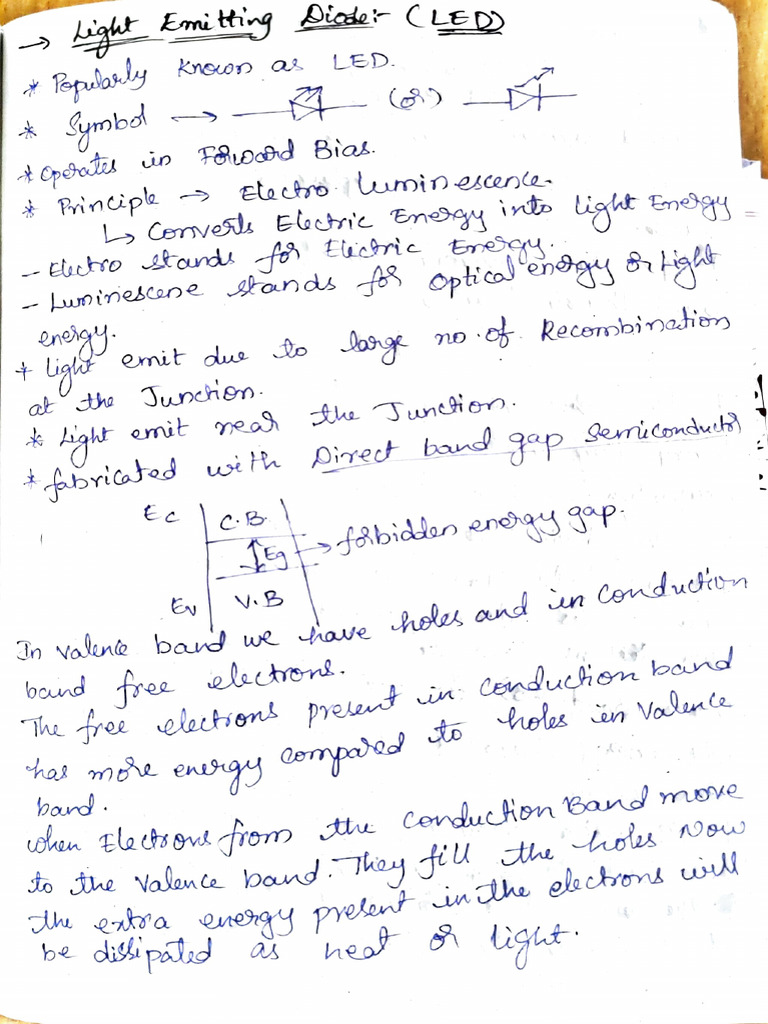 → Light Emitting Diode:- (LED)
* Popularly known as LED.
* Symbol → (or)
* Operates in Forward Bias.
* Principle → Electro luminescence.
↳ Converts Electric Energy into light Energy
- Electro stands for Electric Energy.
- Luminescene stands for optical energy or Light
energy.
* light emit due to large no. of Recombination
at the Junction.
* Light emit near the Junction.
* fabricated with Direct band gap semiconductor
Ec C.B.
Eg → forbidden energy gap.
Ev V.B
In valence band we have holes and in conduction
band free electrons.
The free electrons present in conduction band
has more energy compared to holes in valence
band.
when Electrons from the conduction Band move
to the valence band. They fill the holes Now
the extra energy present in the electrons will
be dissipated as heat or light.